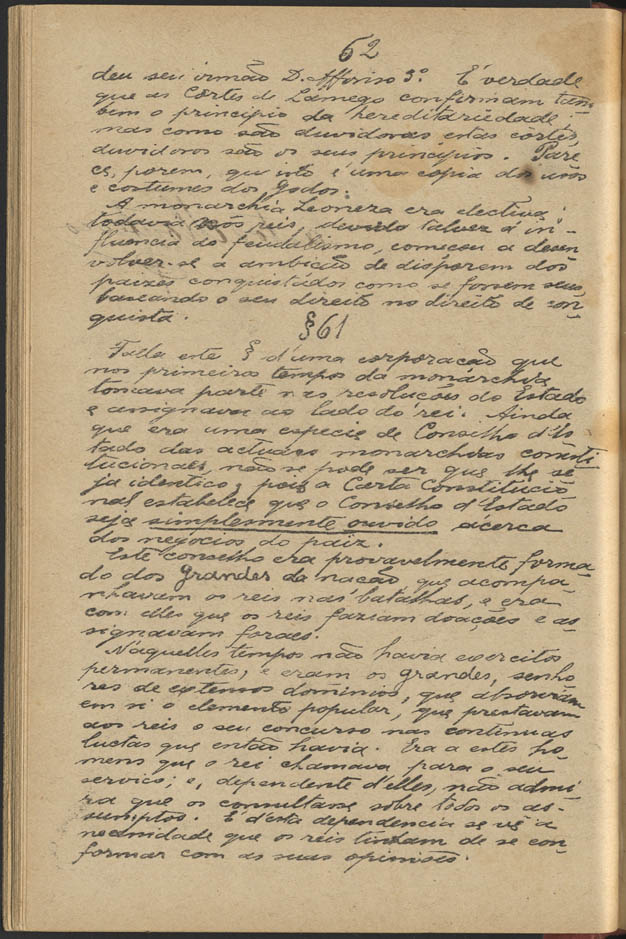 62
deu seu irmão D. Affonso 3º. É verdade
que as Côrtes de Lamego confirmam tam-
bem o principio da hereditariedade
mas como são duvidoras estas côrtes,
duvidoros são os seus principios. Pare
ce, porem, que isto é uma cópia dos usos
e costumes dos Godos.
A monarchia Leoneza era electiva;
todavia nos reis, devido talvez á in-
fluencia do feudalismo, começou a desen
volver-se a ambição de disporem dos
paizes conquistados como se fossem seus,
baseando o seu direito no direito de con-
quista.
§61
Falla este § d'uma corporação que
nos primeiros tempos da monarchia
tomava parte nas resoluções do Estado
e assignava ao lado do rei. Ainda
que era uma especie de Conselho d'Es
tado das actuaes monarchias consti
tucionaes, não se pode ser que lhe se
ja identico, pois a Carta Constitucio
nal estabelece que o Conselho d'Estado
seja simplesmente ouvido ácerca
dos negocios do paiz.
Este conselho era provavelmente forma-
do dos grandes da nação, que acompa-
nhavam os reis nas batalhas, e era
com elles que os reis faziam doações e as-
signavam foraes.
Naquelles tempos não havia exercitos
permanentes, e eram os grandes, senho
res de extensos dominios, que absorviam
em si o elemento popular, que prestavam
aos reis o seu concurso nas continuas
luctas que então havia. Era a estes ho
mens que o rei chamava para o seu
serviço; e, dependente d'elles, não admi
ra que os consultasse sobre todos os as-
sumptos. E d'esta dependencia se vê a
necessidade que os reis tinham de se con-
formar com as suas opiniões.